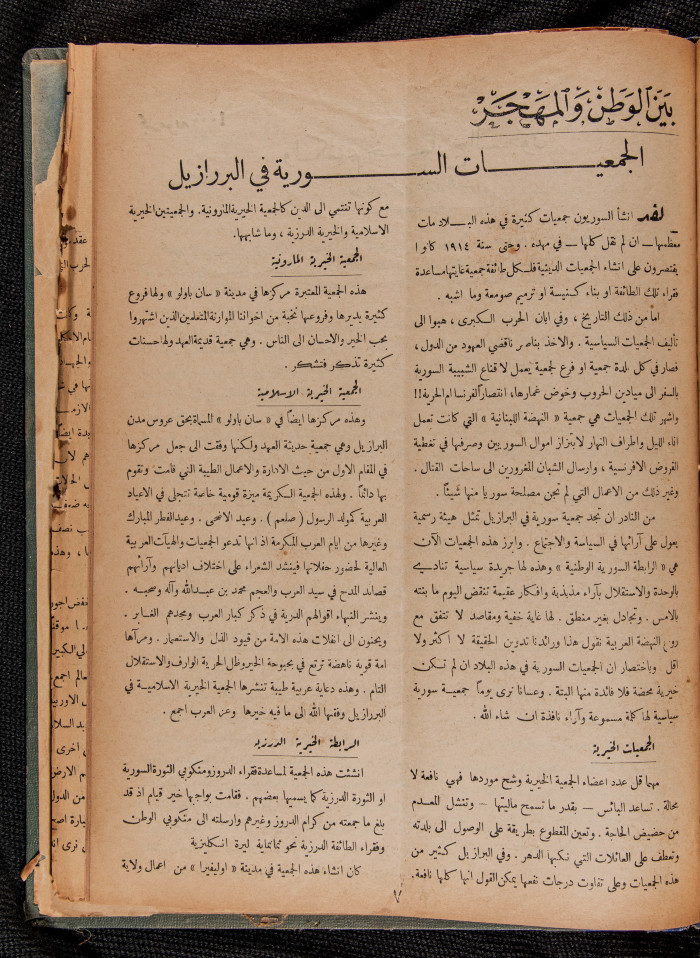 بين الوطن والمهجر
الجمعيات السورية في البرازيل
لقد انشأ السوريون جمعيات كثيرة في هذه البلاد مات
معظمها — ان لم نقل كلها — في مهده . وحتى سنة ١٩١٤ كانوا
يقتصرون على انشاء الجمعيات الدينية فلكل طائفة جمعية غايتها مساعدة
فقراء تلك الطائفة او بناء كنيسة او ترميم صومعة وما اشبه .
اما من ذلك التاريخ ، وفي ابان الحرب الكبرى ، هبوا الى
تأليف الجمعيات السياسية . والاخذ بناصر ناقضي العهود من الدول ،
فصار في كل بلدة جمعية او فرع لجمعية يعمل لاقناع الشبيبة السورية
بالسفر الى ميادين الحروب وخوض غمارها، انتصاراً لفرنسا ام الحرية !!
واشهر تلك الجمعيات هي جمعية « النهضة اللبنانية » التي كانت تعمل
اناء الليل واطراف النهار لابتزاز اموال السوريين وصرفها في تغطية
القروض الافرنسية ، وارسال الشبان المغرورين الى ساحات القتال .
وغير ذلك من الاعمال التي لم تجن مصلحة سوريا منها شيئاً .
من النادر ان تجد جمعية سورية في البرازيل تمثل هيئة رسمية
يعول على آرائها في السياسة والاجتماع . وابرز هذه الجمعيات الآن
هي « الرابطة السورية الوطنية » ولها جريدة سياسية تنادي
بالوحدة والاستقلال بآراء مذبذبة وافكار عقيمة تنقض اليوم ما بنته
بالامس . وتجادل بغير منطق . لها غاية خفية ومقاصد لا تتفق مع
روح النهضة العربية نقول هذا ورائدنا تدوين الحقيقة لا اكثر ولا
اقل وباختصار ان الجمعيات السورية في هذه البلاد ان لم تكن
خيرية محضة فلا فائدة منها البتة . وعسانا نرى يوماً جمعية سورية
سياسية لها كلمة مسموعة وآراء نافذة ان شاء الله .
الجمعيات الخيرية
مهما قل عدد اعضاء الجمعية الخيرية وشح موردها فهي نافعة لا
محالة . تساعد البائس — بقدر ما تسمح ماليتها — وتنشل المعدم
من حضيض الحاجة . وتعين المقطوع بطريقة على الوصول الى بلدته
وتعطف على العائلات التي نكبها الدهر . وفي البرازيل كثير من
هذه الجمعيات وعلى تفاوت درجات نفعها يمكن القول انها كلها نافعة،
مع كونها تنتمي الى الدين كالجمعية الخيرية المارونية . والجمعيتين الخيرية
الاسلامية والخيرية الدرزية ، وما شابهها.
الجمعية الخيرية المارونية
هذه الجمعية المعتبرة مركزها في مدينة « سان باولو » ولها فروع
كثيرة يديرها وفروعها نخبة من اخواننا الموارنة المتعلمين الذين اشتهروا
بحب الخير والاحسان الى الناس . وهي جمعية قديمة العهد ولها حسنات
كثيرة تذكر فتشكر .
الجمعية الخيرية الاسلامية
وهذه مركزها ايضاً في « سان باولو » المسماة بحق عروس مدن
البرازيل وهي جمعية حديثة العهد ولكنها وفقت الى جعل مركزها
في المقام الاول من حيث الادارة والاعمال الطيبة التي قامت وتقوم
بها دائماً . ولهذه الجمعية الكريمة ميزة قومية خاصة تتجلى في الاعياد
العربية كمولد الرسول ( صلعم ) . وعيد الاضحى . وعيد الفطر المبارك
وغيرها من ايام العرب المكرمة اذ انها تدعو الجمعيات والهيآت العربية
العالية لحضور حفلاتها فينشد الشعراء على اختلاف اديانهم وآرائهم
قصائد المدح في سيد العرب والعجم محمد بن عبدالله وآله وصحبه .
وينشر النبهاء اقوالهم الدرية في ذكر كبار العرب ومجدهم الغابر .
ويحنون الى انفلات هذه الامة من قيود الذل والاستعمار . ومرآها
امة قوية ناهضة ترتع في بحبوحة الخير وظل الحرية الوارف والاستقلال
التام . وهذه دعاية عربية طيبة تنشرها الجمعية الخيرية الاسلامية في
البرازيل وفقها الله الى ما فيه خيرها وعز العرب اجمع .
الرابطة الخيرية الدرزية
انشئت هذه الجمعية لمساعدة فقراء الدروز ومنكوبي الثورة السورية
او الثورة الدرزية كما يسميها بعضهم . فقامت بواجبها خير قيام اذ قد
بلغ ما جمعته من كرام الدروز وغيرهم وارسلته الى منكوبي الوطن
وفقراء الطائفة الدرزية نحو ثمانماية ليرة انكليزية
كان انشاء هذه الجمعية في مدينة « اوليفيرا » من اعمال ولاية
٧